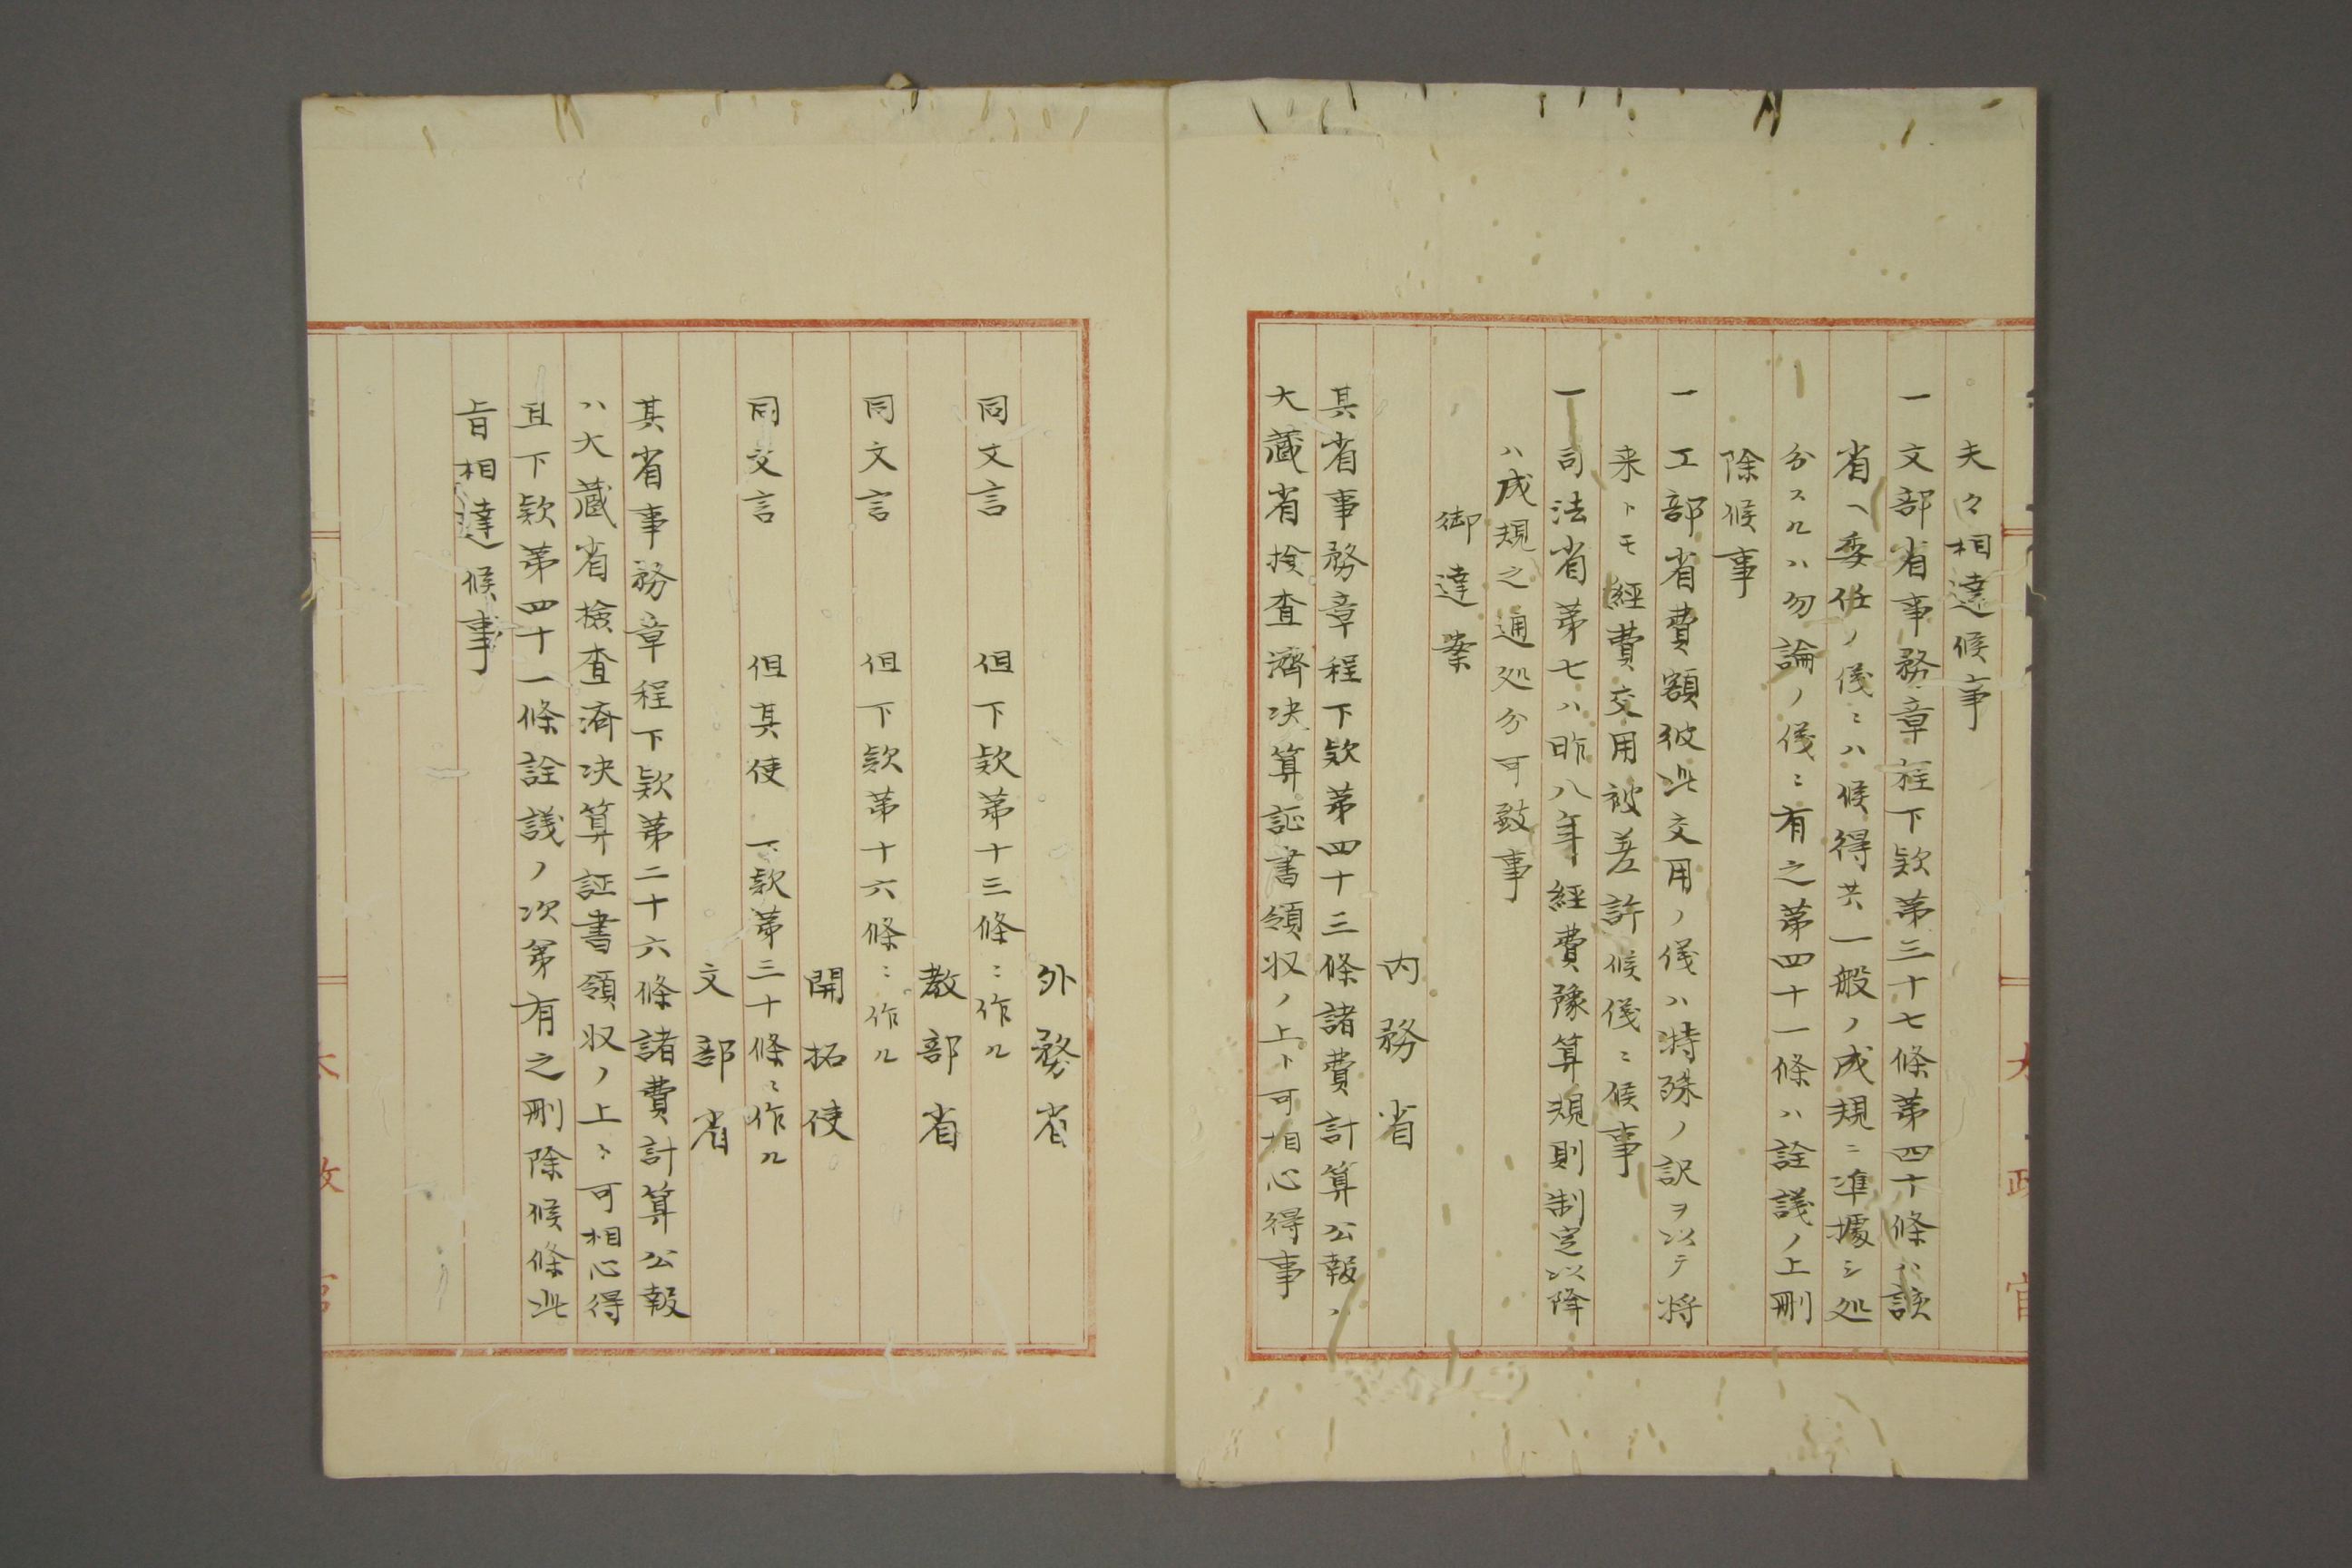 夫々相達候事
一文部省事務章程下款第三十七條第四十條ハ該
省ヘ委任ノ儀ニハ候得共一般ノ成規ニ準據シ処
分スルハ勿論ノ儀ニ有之第四十一條ハ詮議ノ上刪
除候事
一工部省費額彼此交用ノ儀ハ特殊ノ訳ヲ以テ将
来トモ經費交用被差許候儀ニ候事
一司法省第七ハ昨八年經費豫算規則制定以降
ハ成規之通処分可致事
御達案
内務省
其省事務章程下款第四十三條諸費計算公報ハ
大蔵省撿査濟决算証書領収ノ上ト可相心得事
外務省
同文言 但下款第十三條ニ作ル
教部省
同文言 但下款第十六條ニ作ル
開拓使
同文言 但其使下款第三十條ニ作ル
文部省
其省事務章程下款第二十六條諸費計算公報
ハ大蔵省撿査済决算証書領収ノ上ニ可相心得
且下款第四十一條詮議ノ次第有之刪除候條此
旨相達候事
太政官